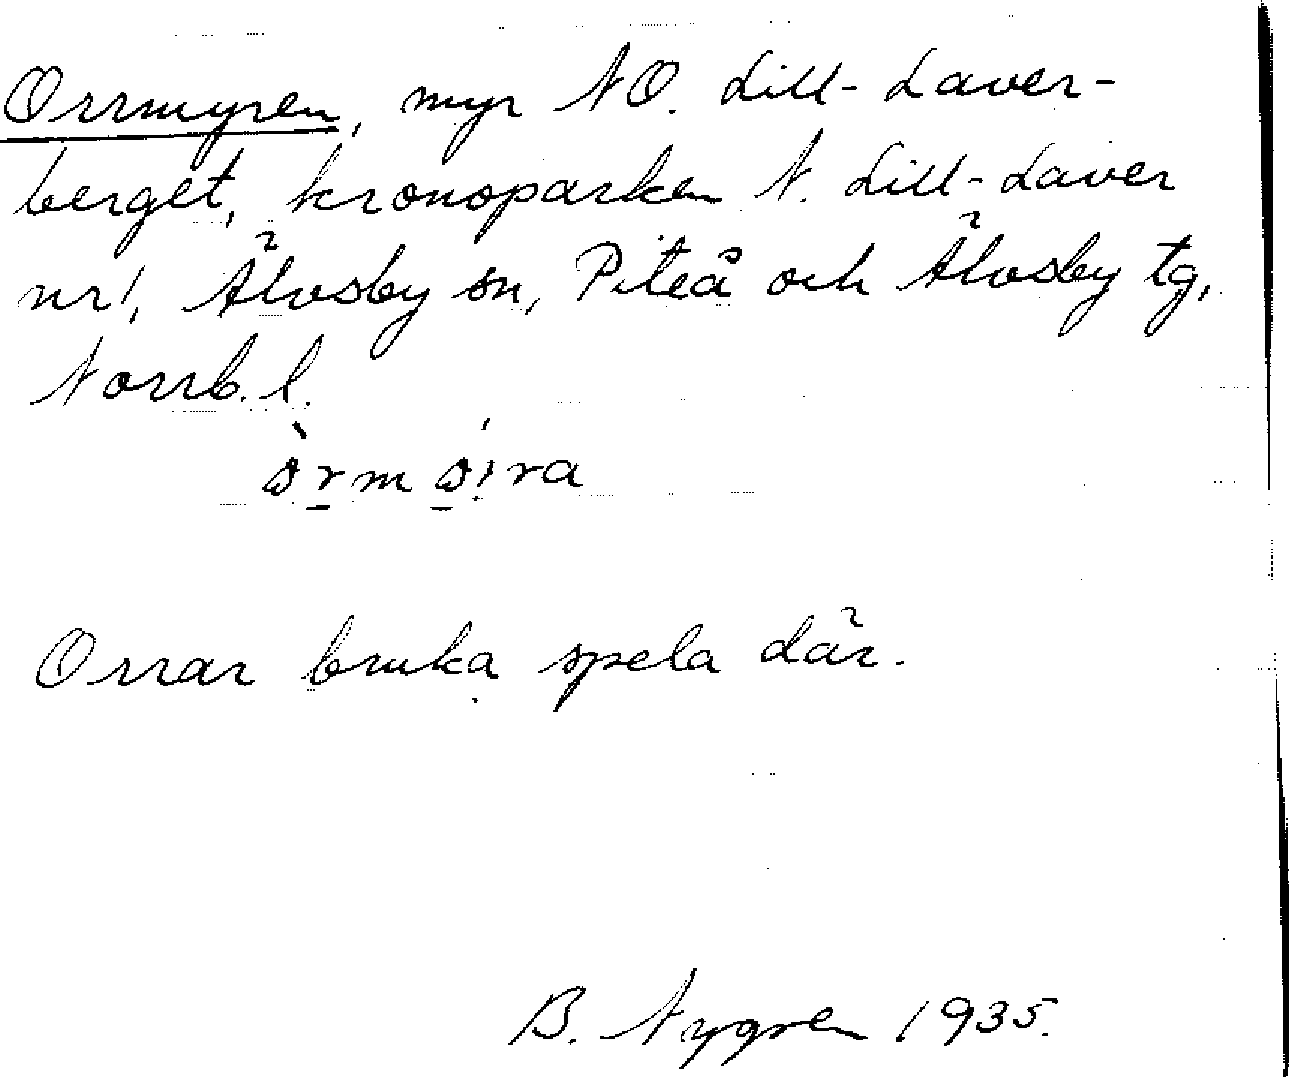 Orrmyren, myr NO. Lill-Laver-
berget, kronoparken N. Lill-Laver
nr 1, Älvsby sn, Piteå och Älvsby tg,
Norrb. l.
Orrar bruka spela där.
B. Nygren 1935.